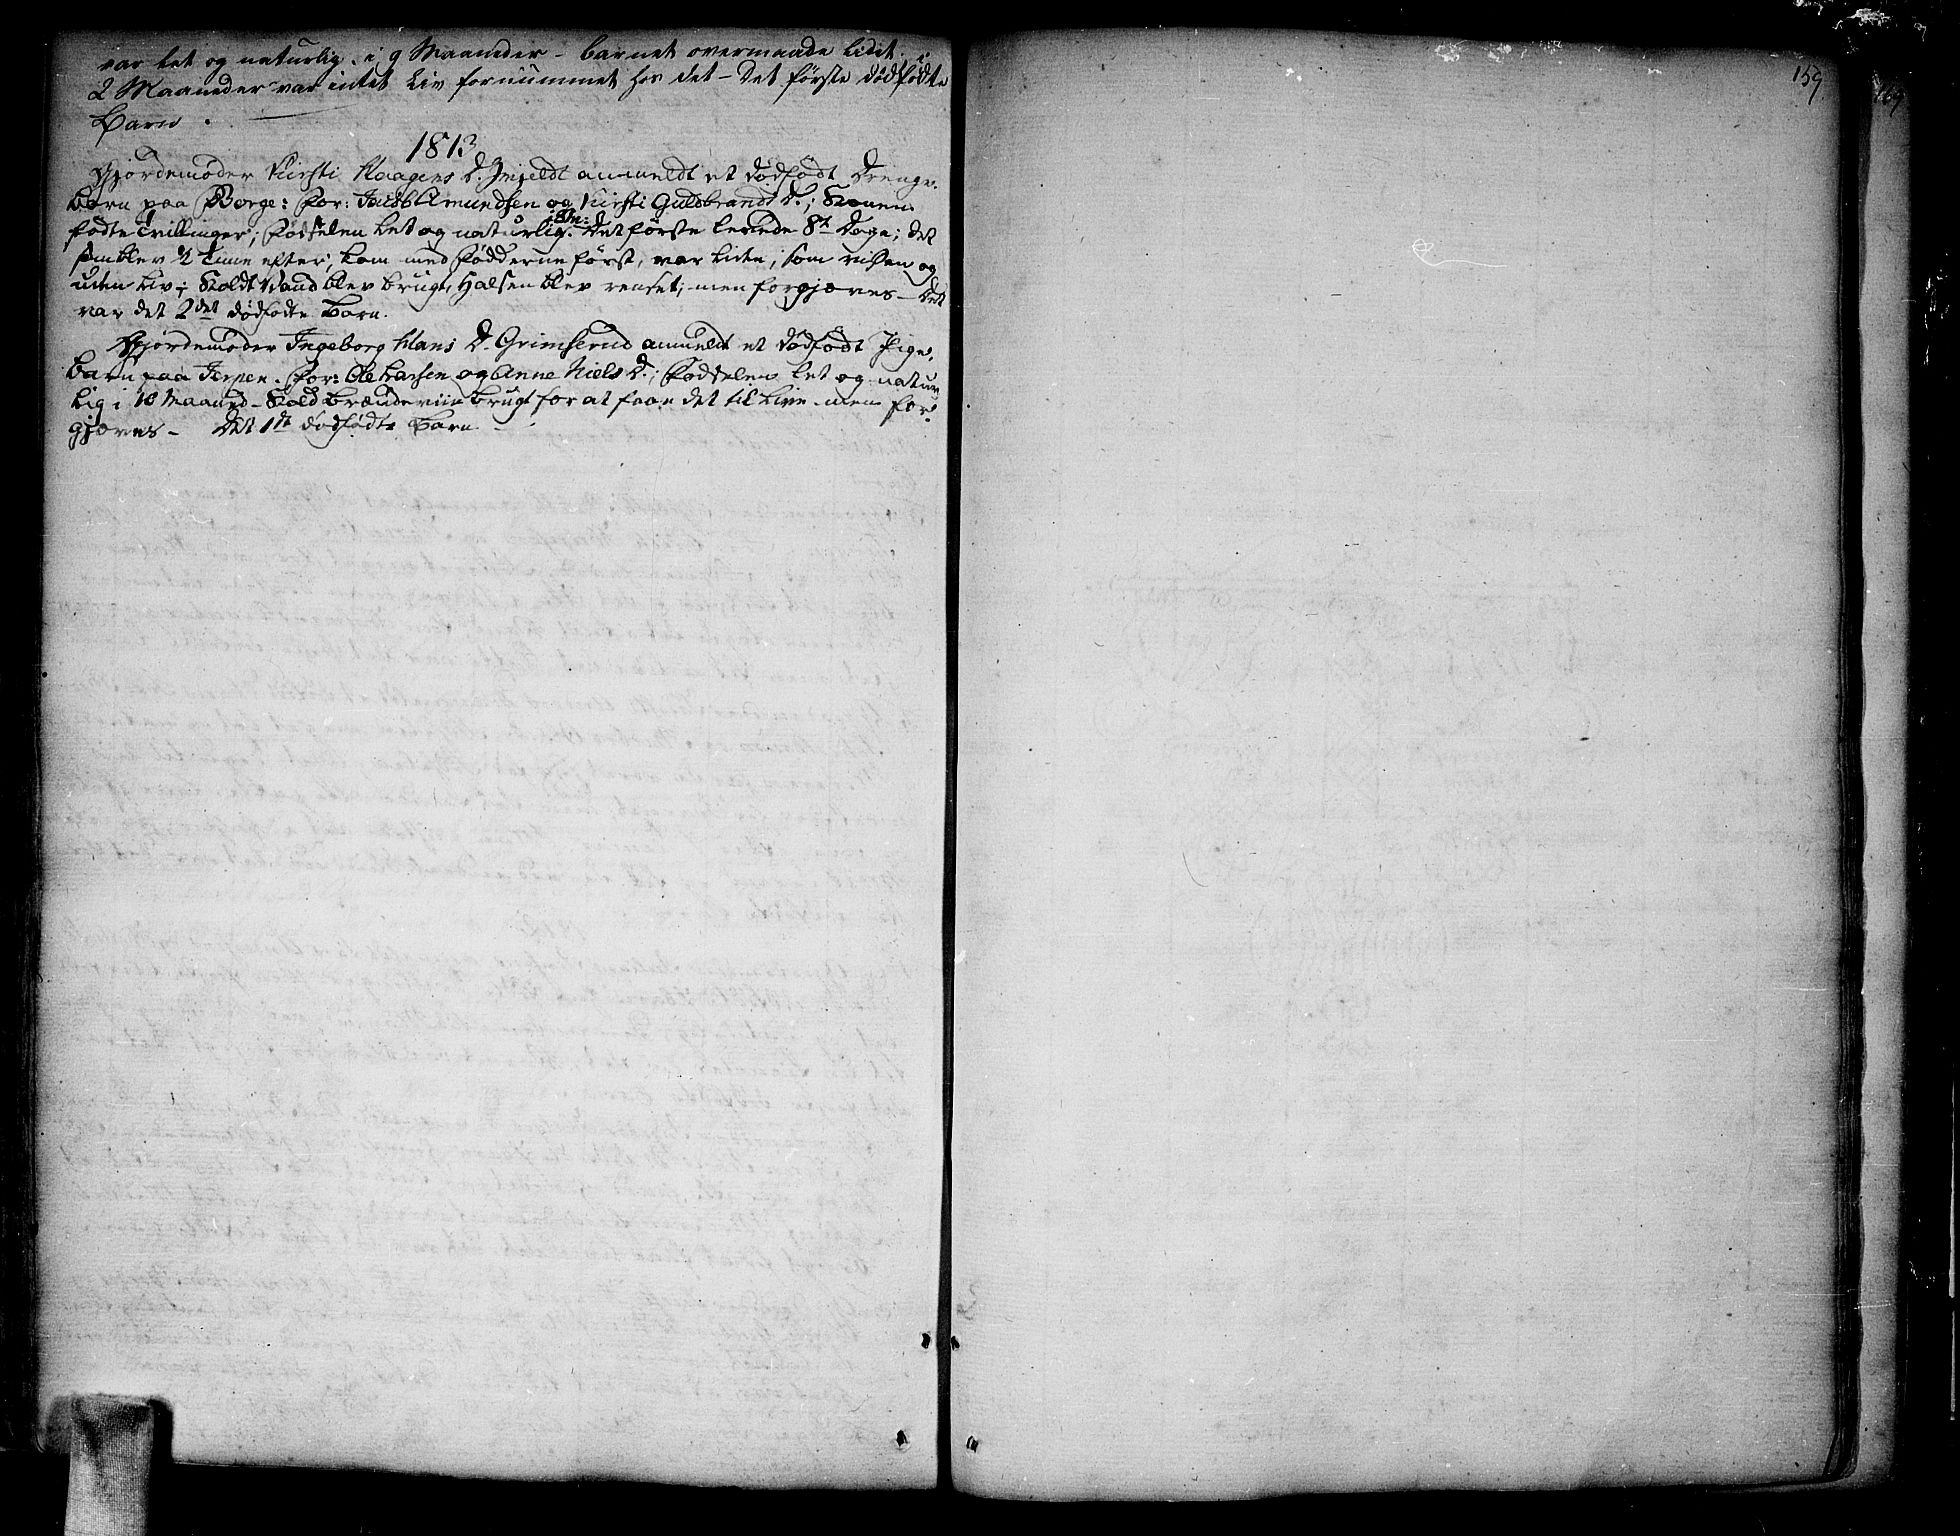 var let og naturlig. i 9 Maaneder – barnet overmaade lidet. i
2 Maaneder var intet Liv fornummet hos det – Det første dødfødte
Barn.
159
1813
Gjordemoder Kirsti Haagens D. anmeldt et dødfødt Drenge-
barn paa Berge: For: Jacob Amundsen og Kirsti Guldbrands D.; Konen
fødte Tvillinger; Fødselen let og naturlig. Det første levede 8t Dage; det
blev ½ Time efter, kom med Fødderne først, var lidet, som vissen og
uden Liv; Koldt Vand blev brugt, Halsen blev renset; men forgjæves – Det
var det 2det dødfødte Barn.
Gjordemoder Ingeborg Hans D. Grimserud anmeldt et dødfødt Pige-
barn paa Jerpen. For: Ole Larsen og Anne Niels D.; Fødselen let og natur-
lig i 10 Maaned – Kold brændeviin brugt for at faae det til Live men for-
gjæves – Det 1te dødfødte Barn –